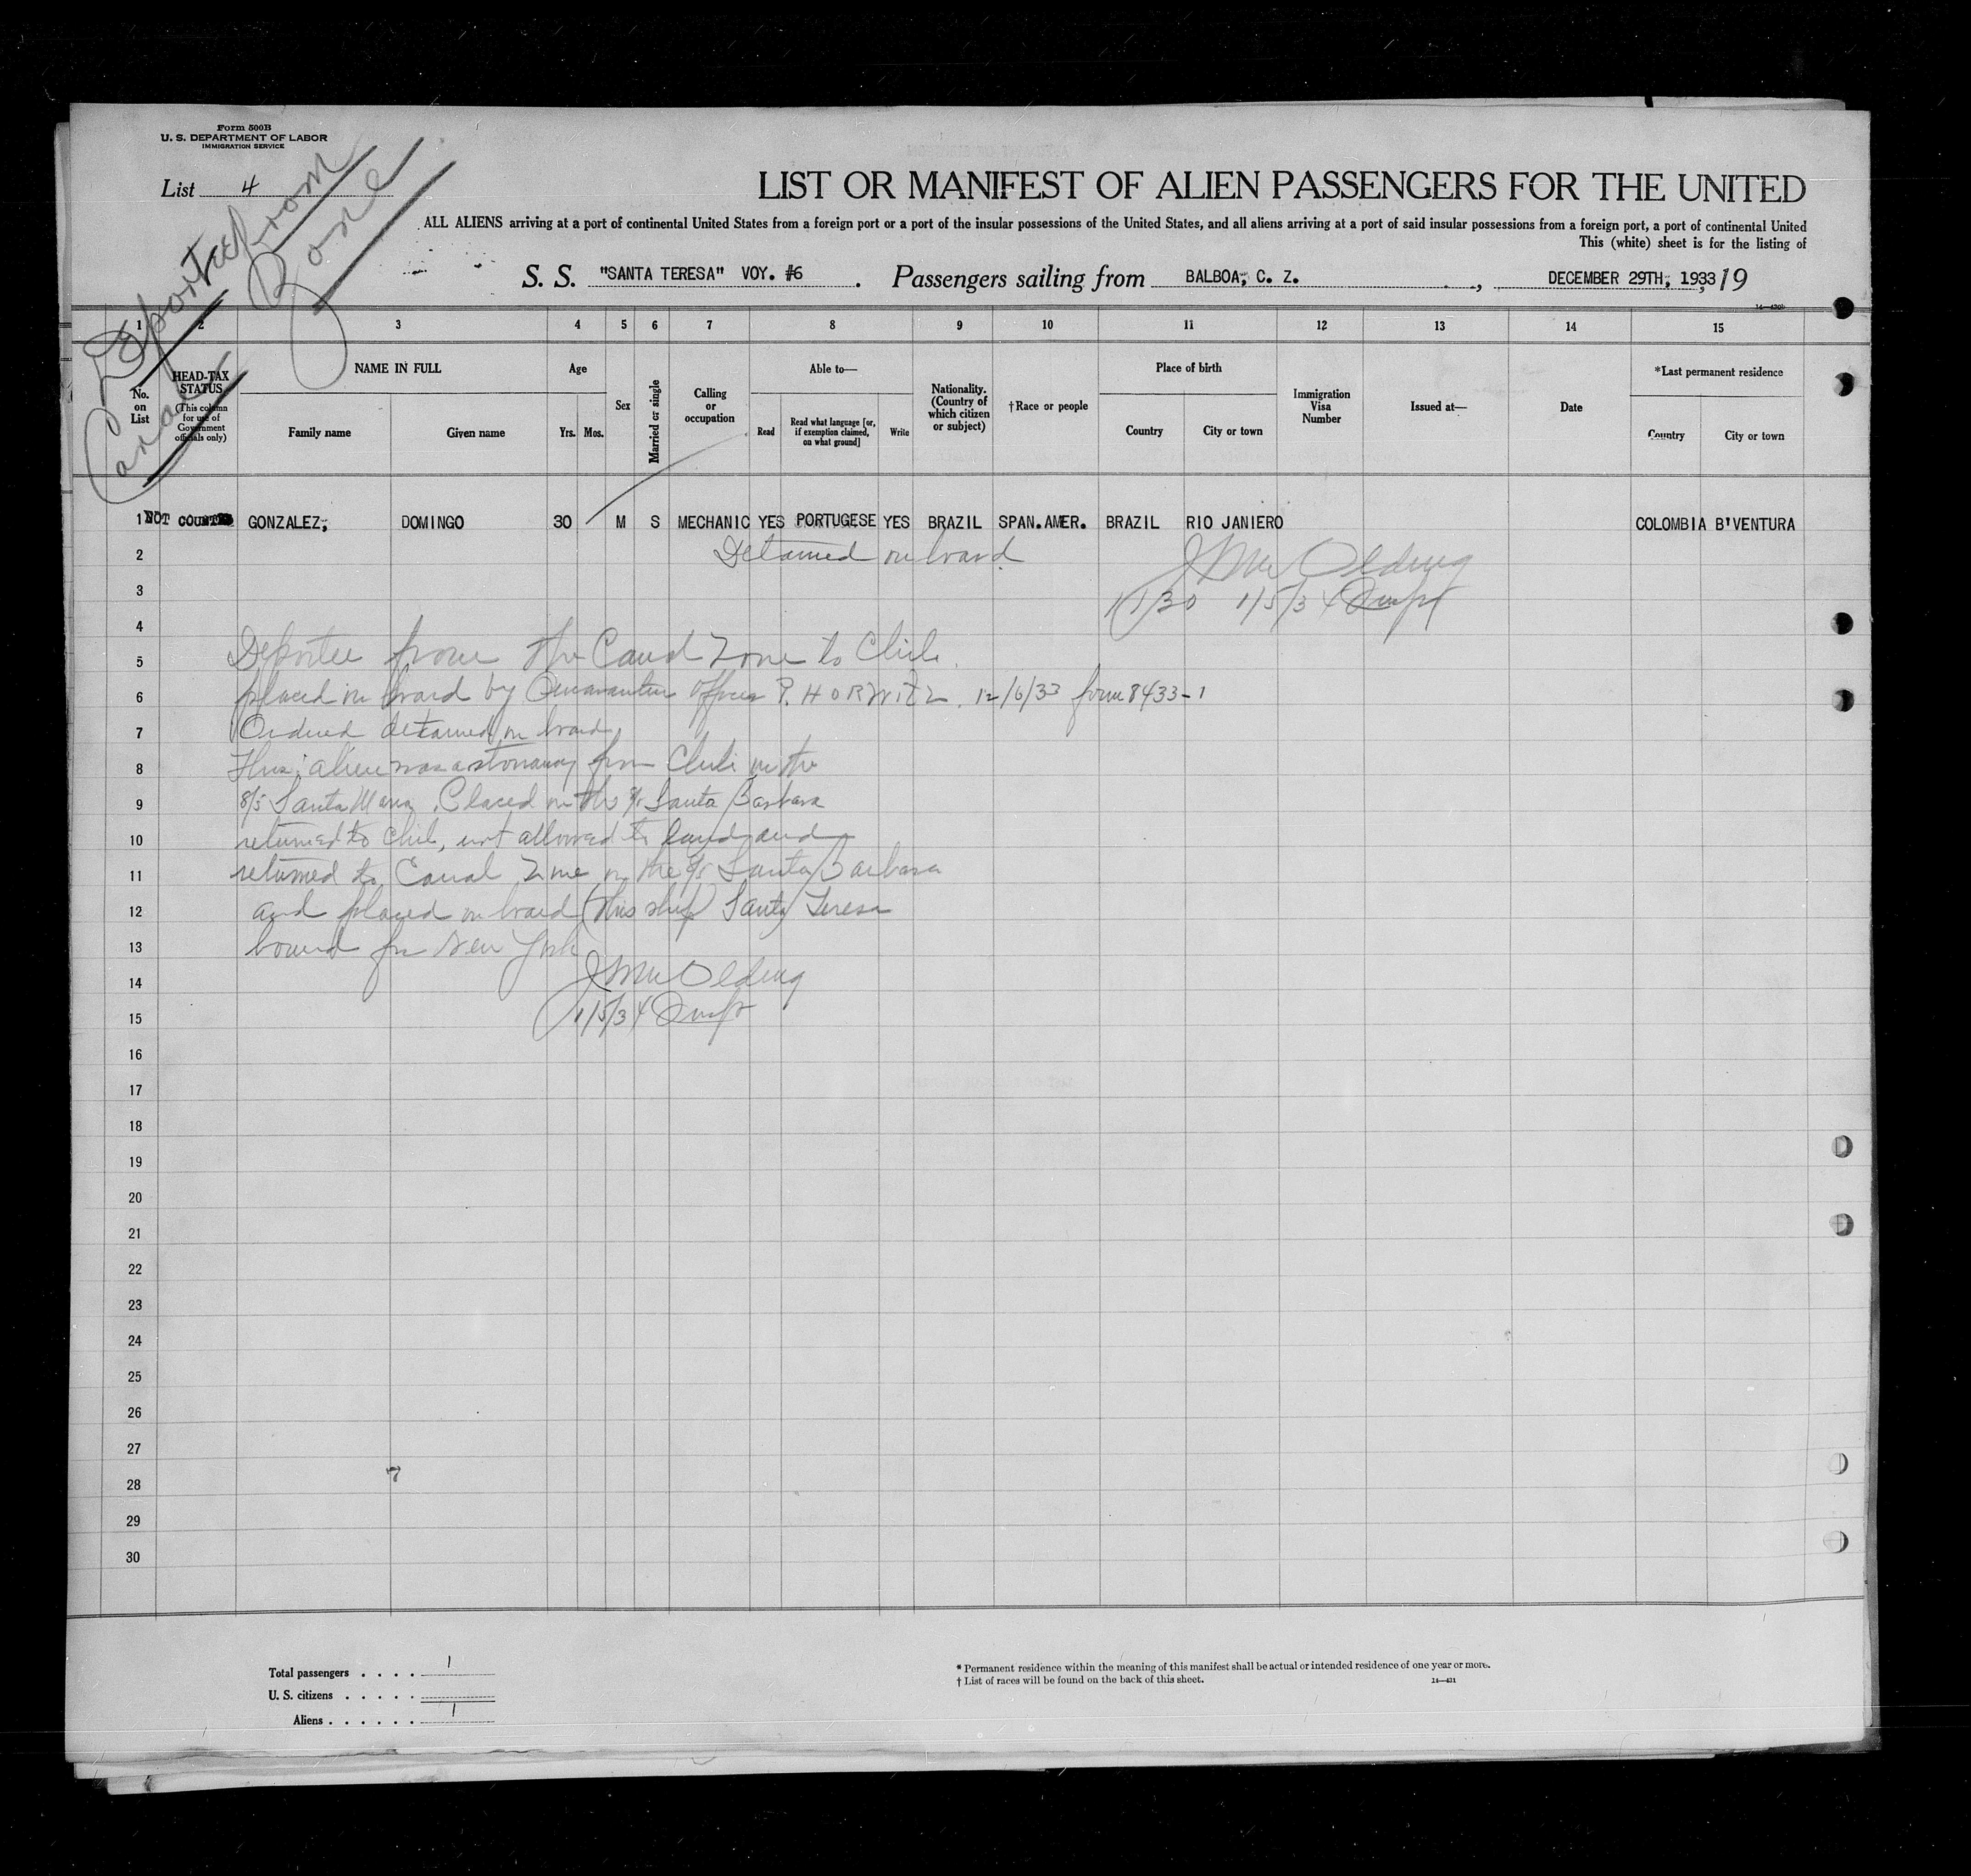 Form 500B
U. S. DEPARTMENT OF LABOR
IMMIGRATION SERVICE
List 4
Deportee from
Canal Zone
LIST OR MANIFEST OF ALIEN PASSENGERS FOR THE UNITED
ALL ALIENS arriving at a port of continental United States from a foreign port or a port of the insular possessions of the United States, and all aliens arriving at a port of said insular possessions from a foreign port, a port of continental United
This (white) sheet is for the listing of
S. S. "SANTA TERESA" VOY. #6 . Passengers sailing from BALBOA, C. Z. , DECEMBER 29TH, 1933, 19
1 2 3 4 5 6 7 8 9 10 11 12 13 14 15
No. on List
HEAD-TAX STATUS (This column for use of Government officials only)
NAME IN FULL
Family name Given name
Age
Yrs. Mos.
Sex
Married or single
Calling or occupation
Able to—
Read Read what language [or, if exemption claimed, on what ground] Write
Nationality. (Country of which citizen or subject)
†Race or people
Place of birth
Country City or town
Immigration Visa Number
Issued at—
Date
*Last permanent residence
Country City or town
1 NOT COUNTED GONZALEZ, DOMINGO 30 M S MECHANIC YES PORTUGESE YES BRAZIL SPAN.AMER. BRAZIL RIO JANIERO COLOMBIA B'VENTURA
2 Detained on board
3 1/5/34 Insp
4
5 Deportee from the Canal Zone to Chile.
6 placed on board by Quarantine Officer P. HORWITZ. 12/6/33 form 8433-1
7 Ordered detained on board
8 This alien was a stowaway from Chile on the
9 S/S Santa Maria. Placed on the S/S Santa Barbara
10 returned to Chile, not allowed to land and
11 returned to Canal Zone on the S/S Santa Barbara
12 and placed on board (this ship) Santa Teresa
13 bound for New York
14
15 1/5/34 Insp
16
17
18
19
20
21
22
23
24
25
26
27
28
29
30
Total passengers . . . . 1
U. S. citizens . . . . .
Aliens . . . . . . 1
* Permanent residence within the meaning of this manifest shall be actual or intended residence of one year or more.
† List of races will be found on the back of this sheet.
14—431